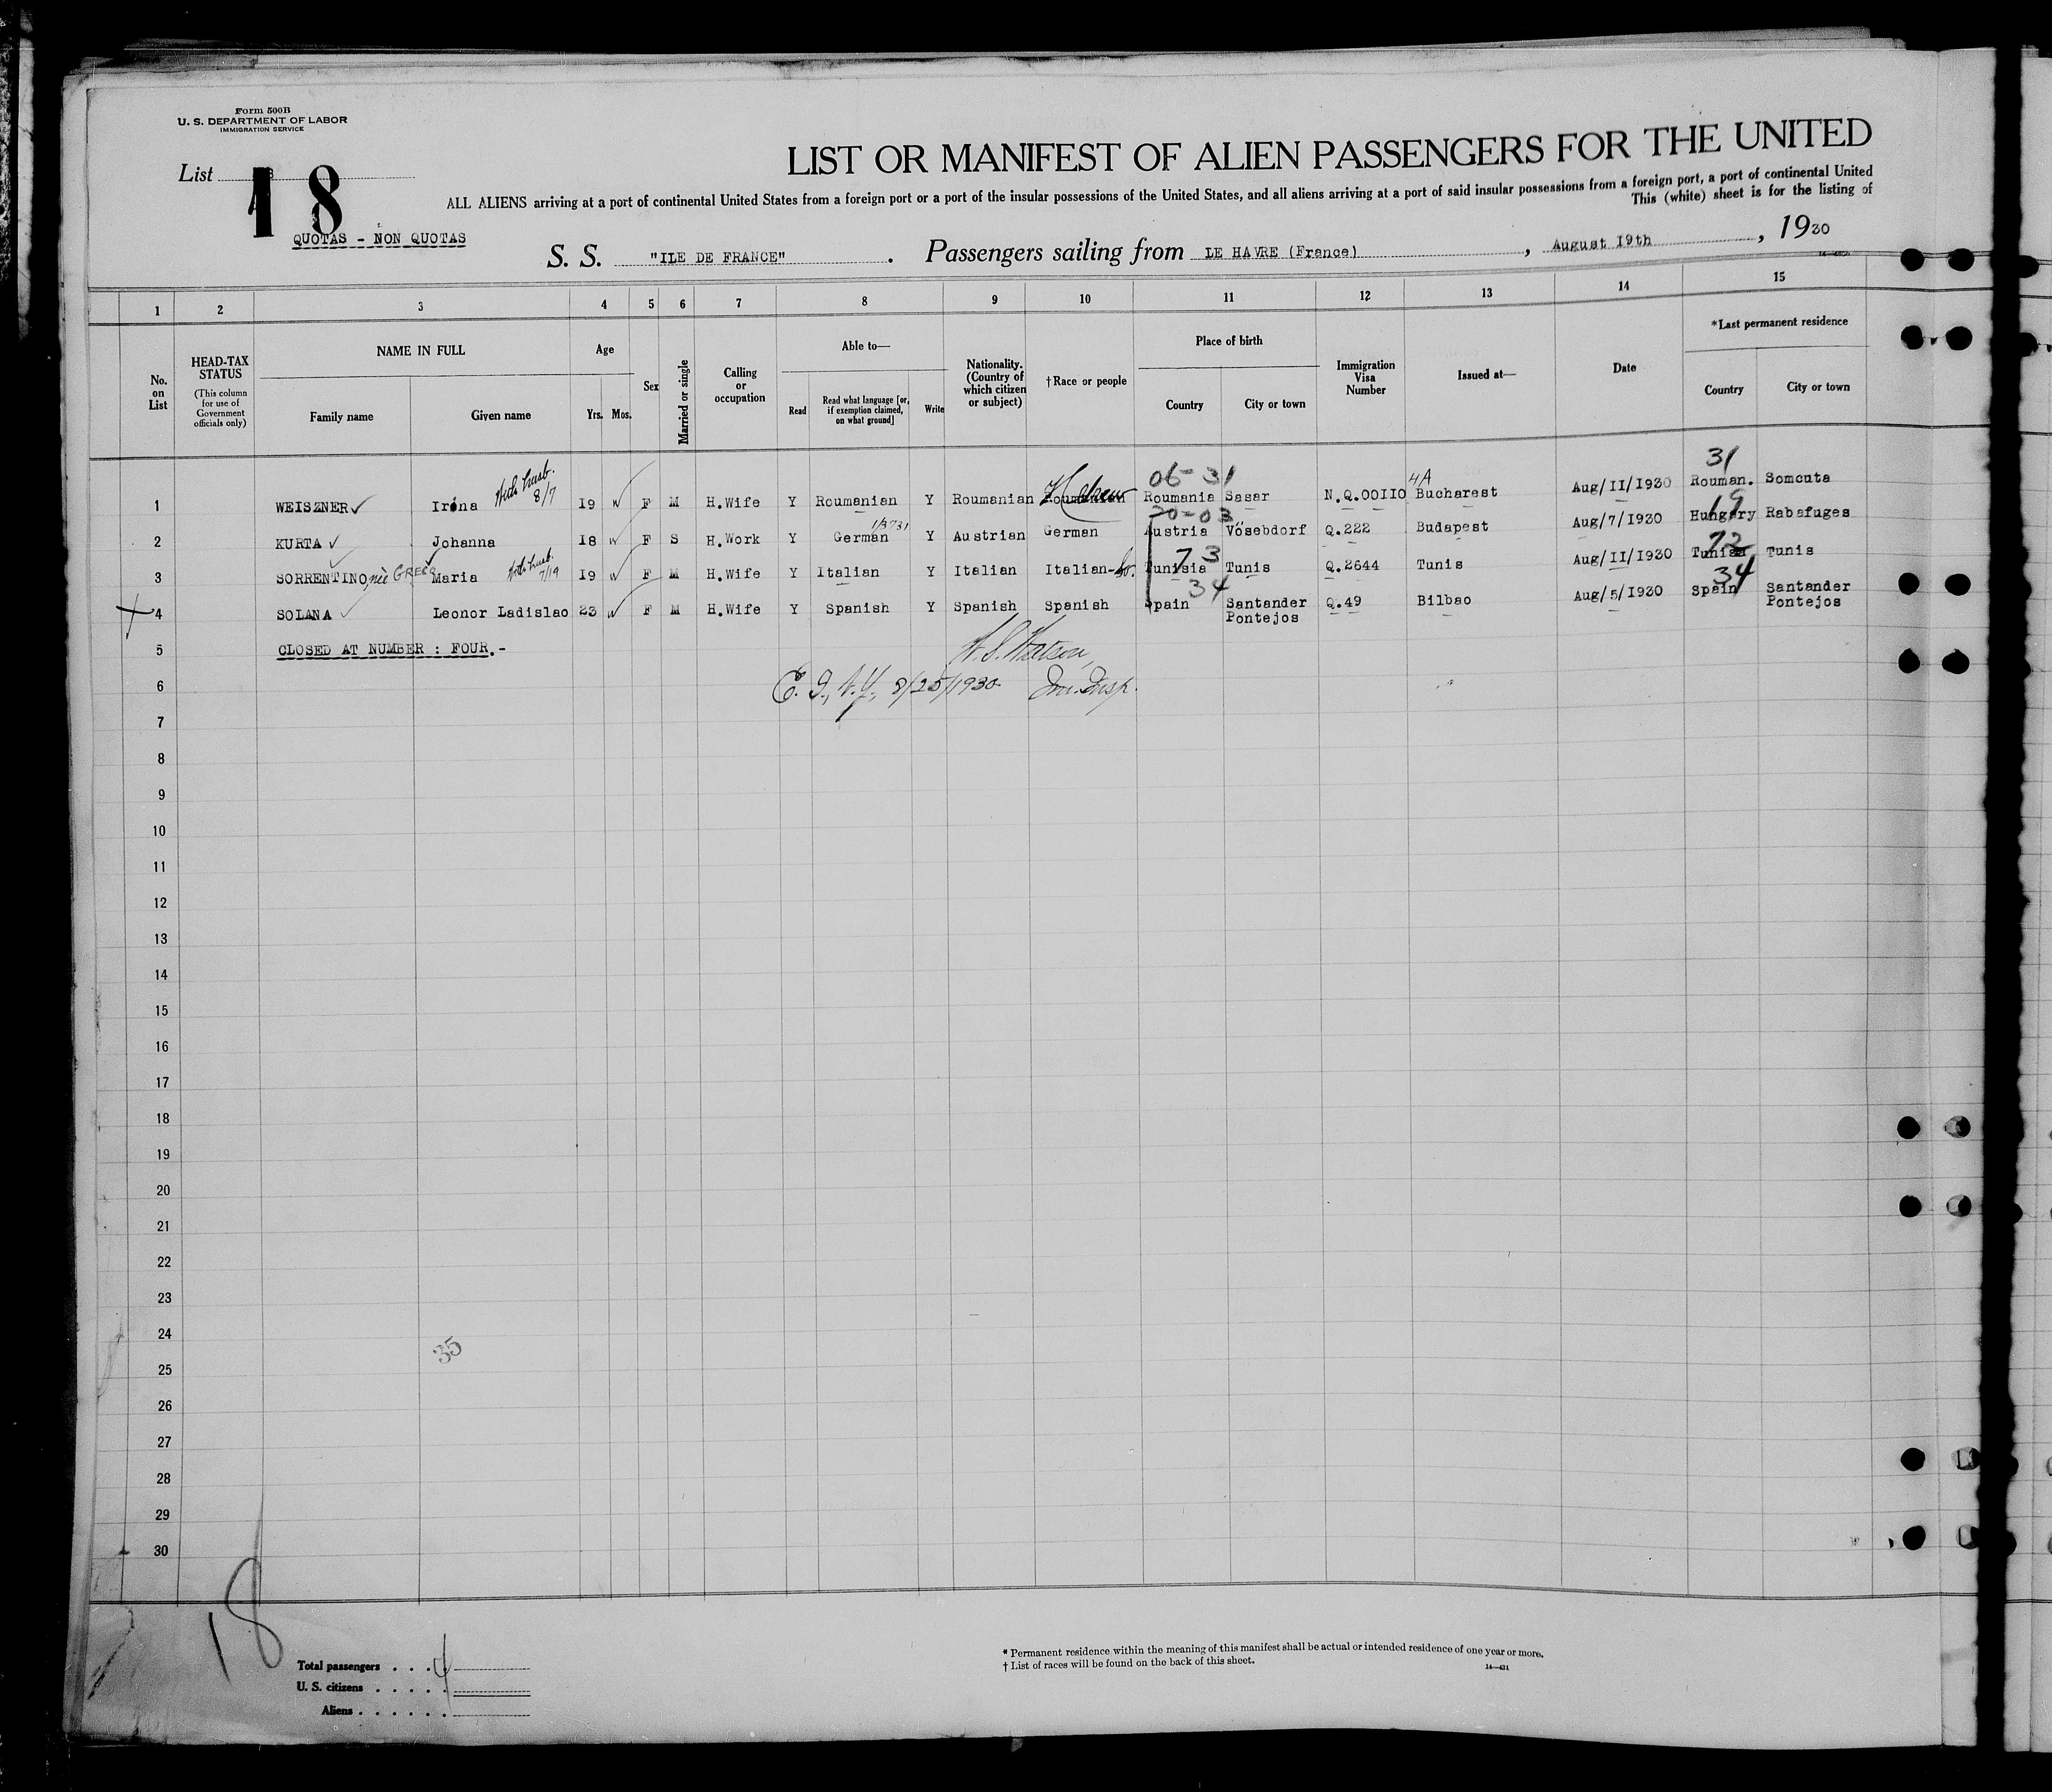 Form 500B
U. S. DEPARTMENT OF LABOR
IMMIGRATION SERVICE
List 18
LIST OR MANIFEST OF ALIEN PASSENGERS FOR THE UNITED
ALL ALIENS arriving at a port of continental United States from a foreign port or a port of the insular possessions of the United States, and all aliens arriving at a port of said insular possessions from a foreign port, a port of continental United
This (white) sheet is for the listing of
QUOTAS - NON QUOTAS
S. S. "ILE DE FRANCE" . Passengers sailing from LE HAVRE (France) , August 19th , 1930
1 2 3 4 5 6 7 8 9 10 11 12 13 14 15
No. on List
HEAD-TAX STATUS
(This column for use of Government officials only)
NAME IN FULL
Family name
Given name
Age
Yrs. Mos.
Sex
Married or single
Calling or occupation
Able to—
Read
Read what language [or, if exemption claimed, on what ground]
Write
Nationality. (Country of which citizen or subject)
†Race or people
Place of birth
Country
City or town
Immigration Visa Number
Issued at—
Date
*Last permanent residence
Country
City or town
06-31 4A 31
1 WEISZNER Iréna 8/7 19 W F M H.Wife Y Roumanian Y Roumanian Hebrew Roumania Sasar N.Q.OOIIO Bucharest Aug/II/1930 Rouman. Somcuta
20-03 19
2 KURTA Johanna 18 W F S H.Work Y German Y Austrian German Austria Vösebdorf Q.222 Budapest Aug/7/1930 Hungary Rabafuges
73 72
3 SORRENTINO née GRECO Maria 7/19 19 W F M H.Wife Y Italian Y Italian Italian-So. Tunisia Tunis Q.2644 Tunis Aug/II/1930 Tunisa Tunis
34 34
4 SOLANA Leonor Ladislao 23 W F M H.Wife Y Spanish Y Spanish Spanish Spain Santander Pontejos Q.49 Bilbao Aug/5/1930 Spain Santander Pontejos
5 CLOSED AT NUMBER : FOUR.-
W. S. Watson,
6 E. I., N.Y., 8/25/1930 Imm. Insp.
7
8
9
10
11
12
13
14
15
16
17
18
19
20
21
22
23
24
35
25
26
27
28
29
30
18
Total passengers . . . . 4
U. S. citizens . . . . .
Aliens . . . . . .
* Permanent residence within the meaning of this manifest shall be actual or intended residence of one year or more.
† List of races will be found on the back of this sheet.
14—431